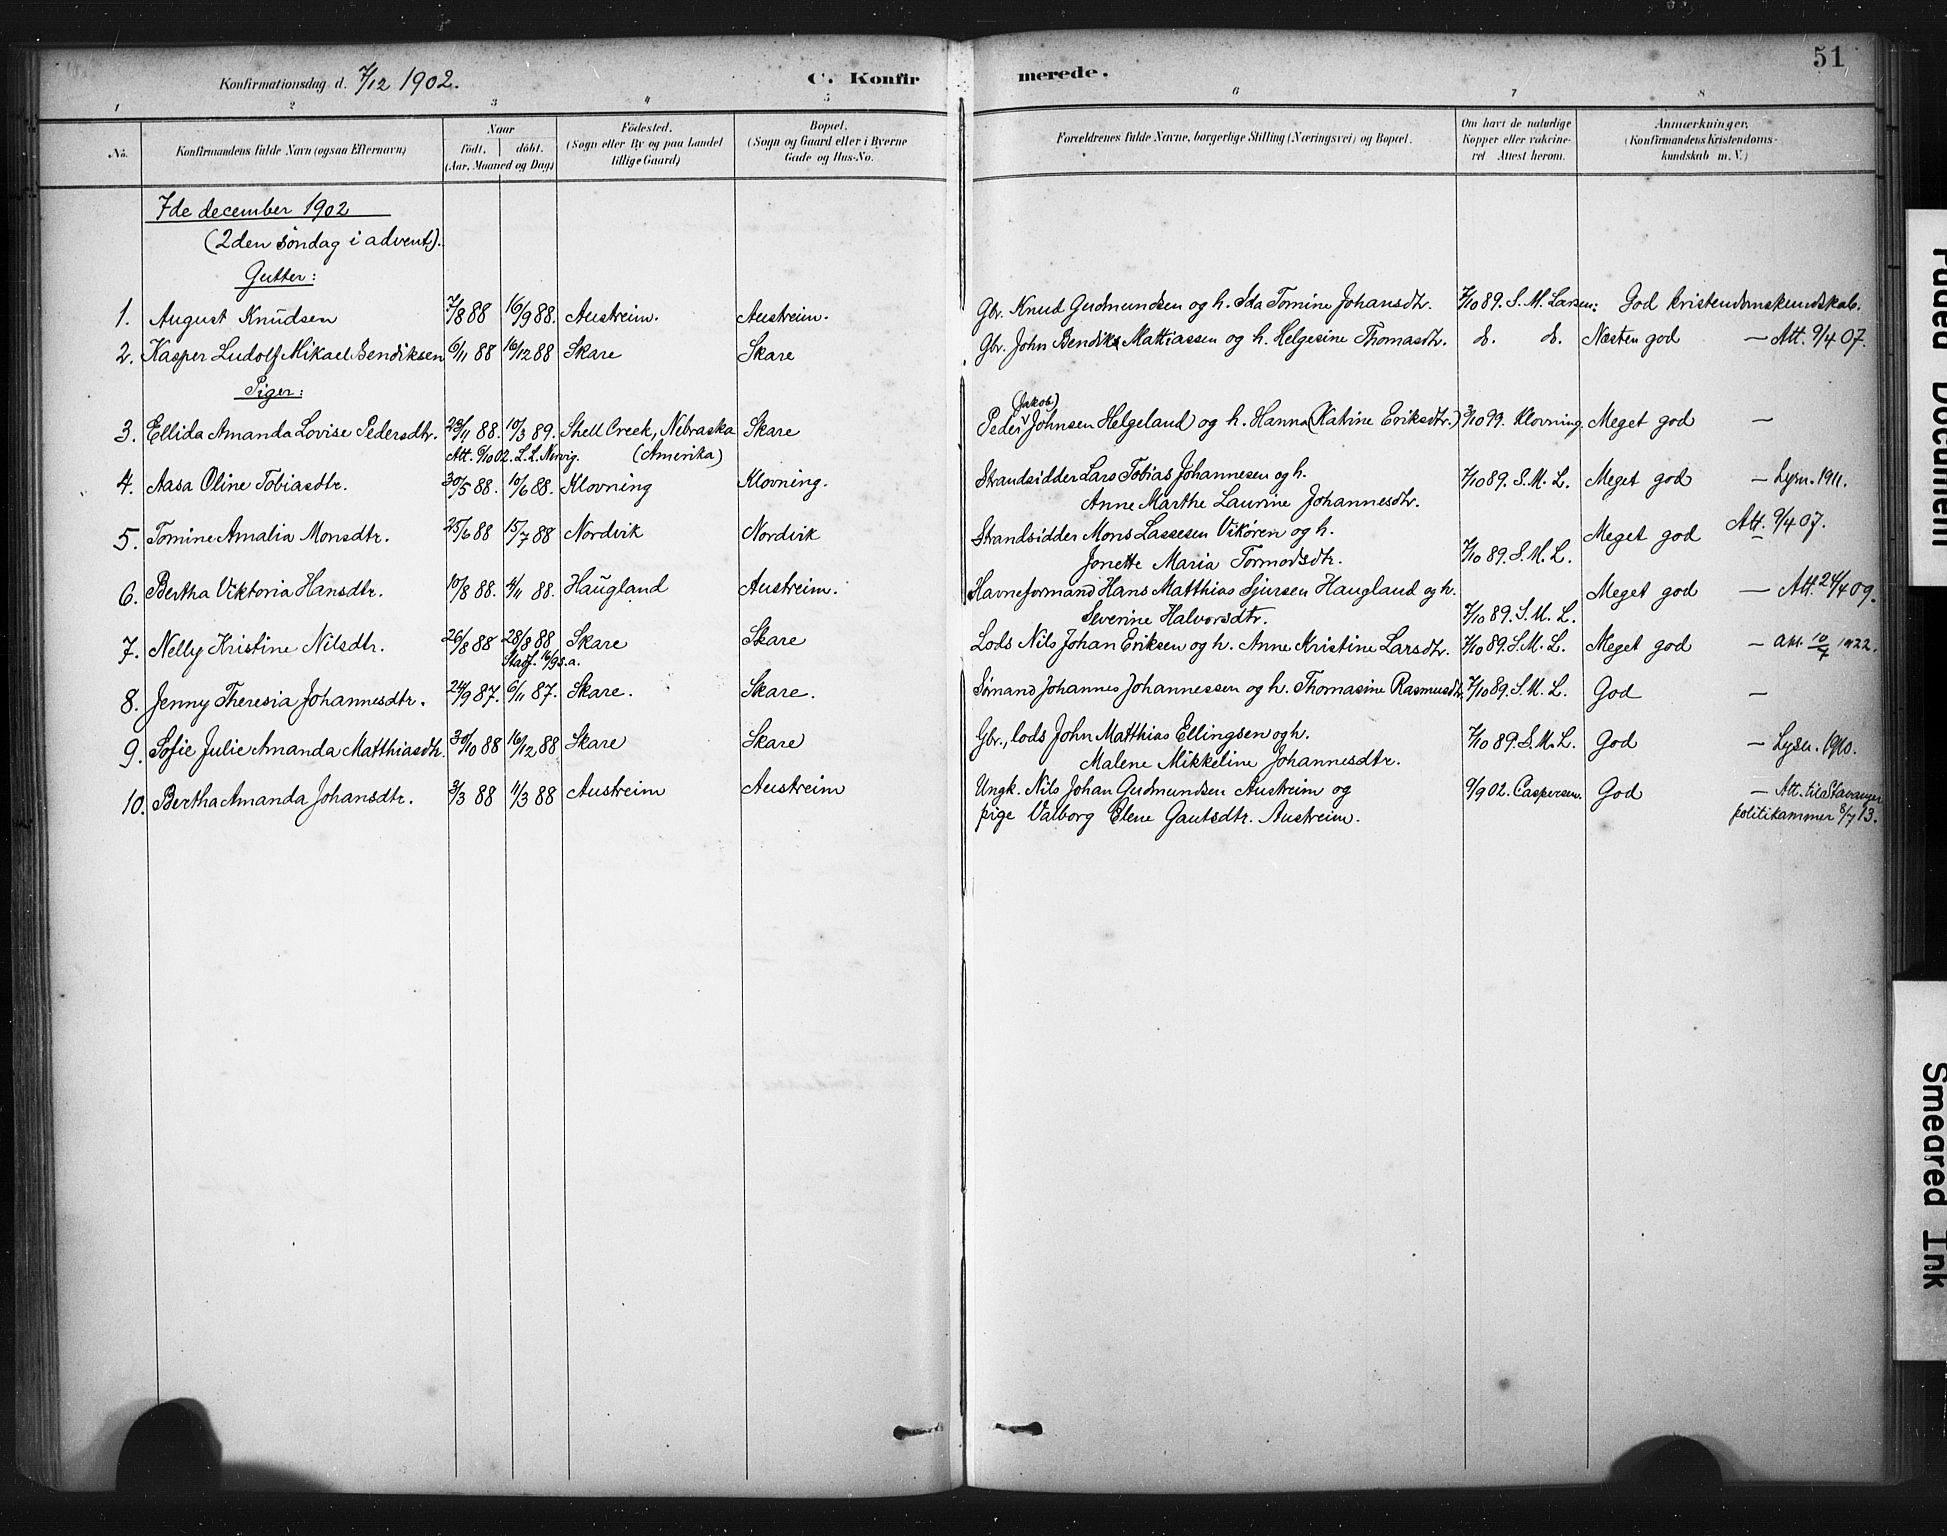 51
Konfirmationsdag d. 7/12 1902.
C. Konfirmerede.
1 2 3 4 5 6 7 8
No.
Konfirmandens fulde Navn (ogsaa Efternavn)
Naar
født. døbt.
(Aar, Maaned og Dag)
Fødested.
(Sogn eller By og paa Landet
tillige Gaard)
Bopæl.
(Sogn og Gaard eller i Byerne
Gade og Hus-No.
Forældrenes fulde Navne, borgerlige Stilling (Næringsvei) og Bopæl.
Om havt de naturlige
Kopper eller vakcine-
ret Attest herom.
Anmærkninger,
(Konfirmandens Kristendoms-
kundskab m. V.)
7de december 1902
(2den søndag i advent).
Gutter:
1. August Knudsen 7/8 88 16/9 88. Austreim. Austreim. Gbr. Knud Gudmundsen og h. Ida Tomine Johansdtr. 7/10 89. S. M. Larsen: God kristendomskundskab.
2. Kasper Ludolf Mikael Bendiksen 6/11 88 16/12 88 Skare Skare Gbr. John Bendiks Mattiassen og h. Helgesine Thomasdtr. d. d. Næsten god — Att. 9/4 07.
Piger:
(Jakob)
3. Ellida Amanda Lovise Pedersdtr. 23/11 88. 10/3 89. Shell Creek, Nebraska Skare Peder Johnsen Helgeland og h. Hanna (Katrine Eriksdtr.) 3/10 99. Klovning. Meget god —
Att. 9/10 02. L. L. Nervig. (Amerika)
4. Aasa Oline Tobiasdtr. 30/5 88. 10/6 88. Klovning Klovning. Strandsidder Lars Tobias Johannesen og h. 7/10 89. S. M. L. Meget god — Lysn. 1911.
Anne Marthe Laurine Johannesdtr.
5. Tomine Amalia Monsdtr. 25/6 88 15/7 88 Nordvik Nordvik Strandsidder Mons Lassesen Vikøren og h. Meget god Att. 9/4 07.
Jonette Maria Tormodsdtr. 7/10 89. S. M. L.
6. Bertha Viktoria Hansdtr. 10/8 88. 4/11 88. Haugland Austreim. Havneformand Hans Matthias Sjursen Haugland og h. Meget god — Att. 24/4 09.
Severine Halvorsdtr. 7/10 89. S. M. L.
7. Nelly Kristine Nilsdtr. 26/8 88 28/8 88 Skare Skare Lods Nils Johan Eriksen og h. Anne Kristine Larsdtr. 7/10 89. S. M. L. Meget god — Att. 10/7 1922.
Stadf. 16/9 s.a.
8. Jenny Theresia Johannesdtr. 24/9 87. 6/11 87. Skare. Skare. Sømand Johannes Johannessen og h. Thomasine Rasmusdtr. 7/10 89. S. M. L. God —
9. Sofie Julie Amanda Matthiasdtr. 30/10 88 16/12 88 Skare Skare Gbr., lods John Matthias Ellingsen og h. 7/10 89. S. M. L. God — Lysn. 1910.
Malene Mikkeline Johannesdtr.
10. Bertha Amanda Johansdtr. 3/3 88 11/3 88 Austreim Austreim Ungk. Nils Johan Gudmundsen Austreim og 9/9 02. Caspersen. God — Att. til Stavanger
pige Valborg Elene Gautsdtr. Austreim. politikammer 8/7 13.
Faded Document
Smeared Ink